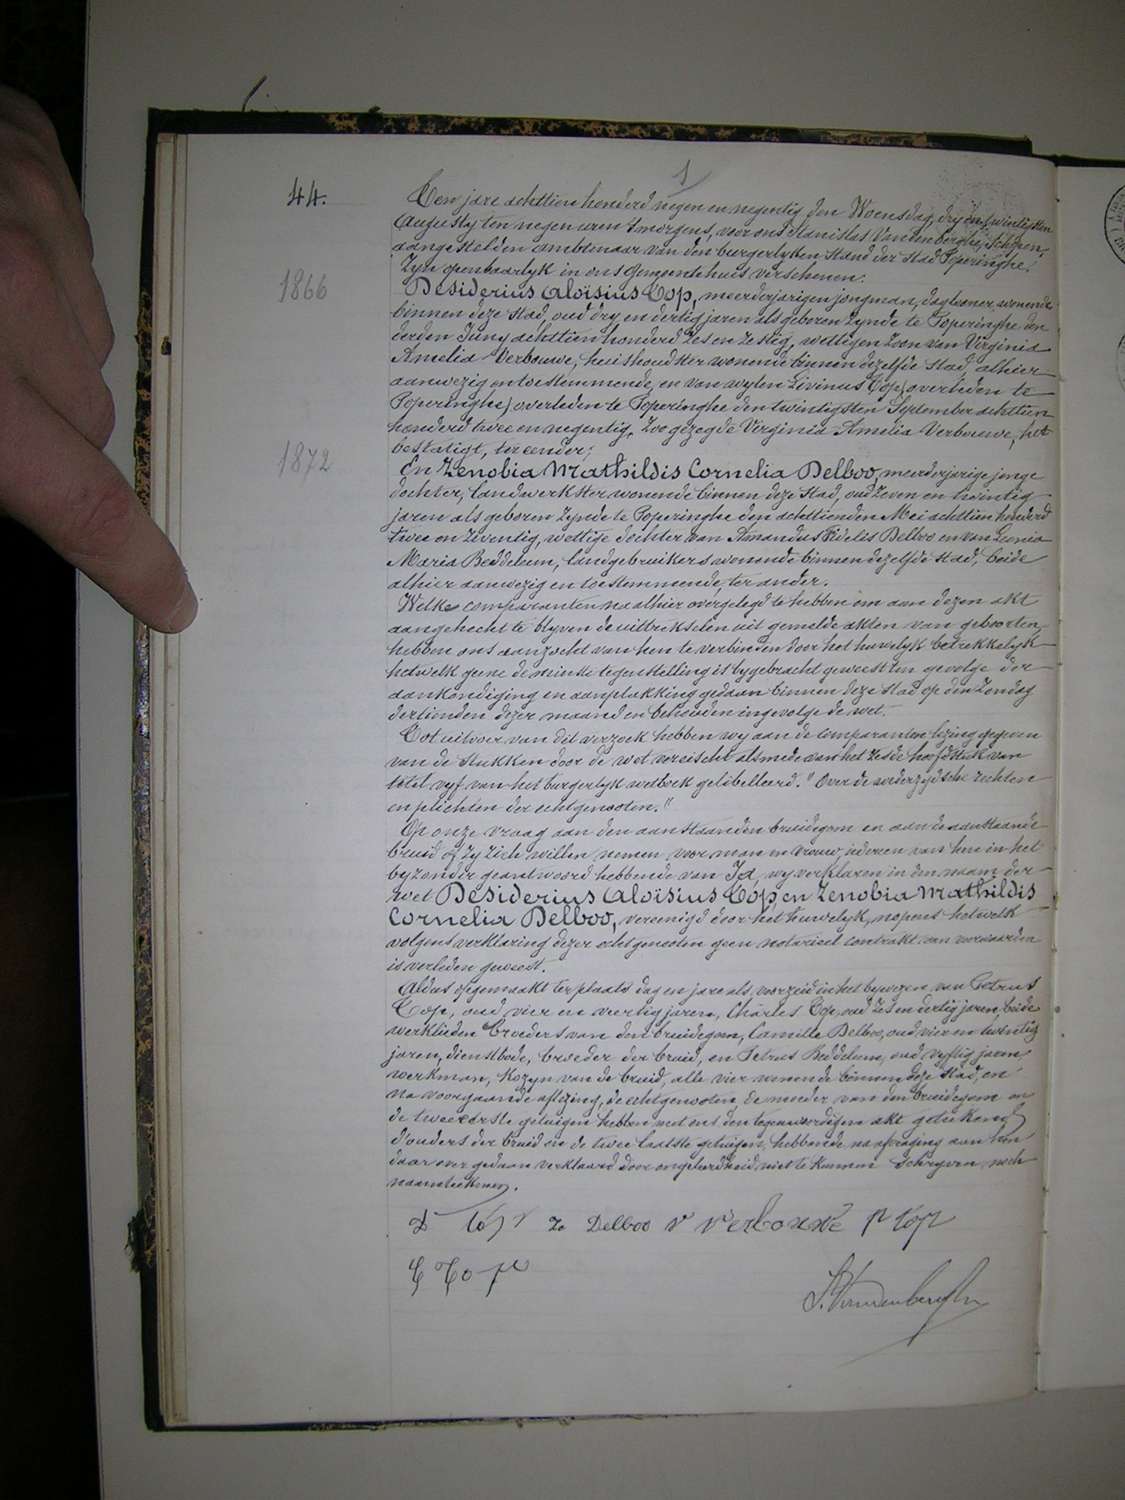 1
44.
Ten jare achttien honderd negen en negentig den Woensdag, dry en twintigsten
Augusty ten negen uren 's morgens, voor ons Stanislas Vandenberghe, Schepen,
aangestelden ambtenaar van den burgerlyken stand der stad Poperinghe,
Zyn openbaarlyk in ons Gemeentehuis verschenen:
1866
Desiderius Aloïsius Cop, meerderjarigen jongman, daglooner, wonende
binnen deze stad, oud dry en dertig jaren als geboren zynde te Poperinghe den
derden Juny achttien honderd zes en zestig, wettigen zoon van Virginia
Amelia Verbouwe, huishoudster wonende binnen dezelfde stad, alhier
aanwezig en toestemmende, en van wylen Livinus Cop, overleden te
Poperinghe) overleden te Poperinghe den twintigsten September achttien
honderd twee en negentig, zoo gezegde Virginia Amelia Verbouwe, het
bestatigt, ter eender;
1872
En Zenobia Mathildis Cornelia Delboo, meerderjarige jonge
dochter, landwerkster wonende binnen deze stad, oud zeven en twintig
jaren als geboren zynde te Poperinghe den achttienden Mei achttien honderd
twee en zeventig, wettige dochter van Amandus Fidelis Delboo en van Leonia
Maria Beddeleem, landgebruikers wonende binnen dezelfde stad, beide
alhier aanwezig en toestemmende, ter ander.
Welke comparanten na alhier overgelegd te hebben om aan dezen akt
aangehecht te blyven de uittrekselen uit gemelde akten van geboorten,
hebben ons aanzocht van hen te verbinden door het huwelyk betrekkelyk
hetwelk geene de minste tegenstelling is bygebracht geweest in gevolge der
aankondiging en aanplakking gedaan binnen deze stad op den Zondag
dertienden dezer maand en behouden ingevolge de wet.
Tot uitvoer van dit verzoek hebben wy aan de comparanten lezing gegeven
van de stukken door de wet vereischt alsmede van het zesde hoofdstuk van
titel vyf van het burgerlyk wetboek gelibelleerd. "Over de wederzydsche rechten
en plichten der echtgenooten."
Op onze vraag aan den aanstaanden bruidegom en aan de aanstaande
bruid of zy zich willen nemen voor man en vrouw, iedereen van hen in het
byzonder geantwoord hebbende van Ja, wy verklaren in den naam der
wet Desiderius Aloïsius Cop, en Zenobia Mathildis
Cornelia Delboo, vereenigd door het huwelyk, nopens hetwelk
volgens verklaring dezer echtgenooten geen notarieel contrakt van voorwaarden
is verleden geweest.
Aldus opgemaakt ter plaats dag en jare als voorzeid in het bywezen van Petrus
Cop, oud vier en veertig jaren, Charles Cop, oud zes en dertig jaren, beide
werklieden broeders van den bruidegom, Camille Delboo, oud vier en twintig
jaren, dienstbode, broeder der bruid, en Petrus Beddeleem, oud vyftig jaren,
werkman, kozyn van de bruid, alle vier wonende binnen deze stad, en
na voorgaande aflezing, de echtgenooten de moeder van den bruidegom en
de twee eerste getuigen hebben met ons den tegenwoordigen akt geteekend,
d'ouders der bruid en de twee laatste getuigen, hebbende na afvraging aan hen
daarover gedaan verklaard door ongeleerdheid niet te kunnen schryven noch
naamteekenen.
D Cop Ze Delboo V Verbouwe P Cop
C Cop
S. Vandenberghe